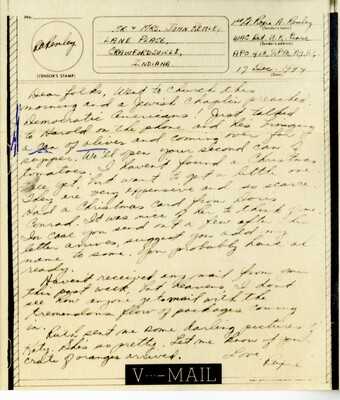 MR & MRS. JOHN
LANE PLACE,
CRAWFORDSVILLE,
INDIANA
(CENSOR'S STAMP)
WAC Det. U.K. Base
APO 413,
17 Dec. 1944
Dear folks, Went to church this
morning and a Jewish Chaplin preached.
Democratic Americans! Just talked
to Harold on the phone and he's bringing
a can of olives and coming over for
supper. We'll open your second can of
tomatoes. I haven't found a Christmas
tree yet, but want to get a little one.
They are very expensive and so scarce.
Had a Christmas card from Doris
Conrad. It was nice of her to think of me.
In case you send out a few after this
letter arrives, suggest you add my
name to some. You probably have al
ready.
Haven't received any mail from home
this past week but heavens, I don't
see how anyone gets mail with the
tremendous flow of packages coming
in.
Ruth sent me some darling pictures of
Katy. She's so pretty. Let me know if your
crate of oranges arrived.
Love
V···—MAIL